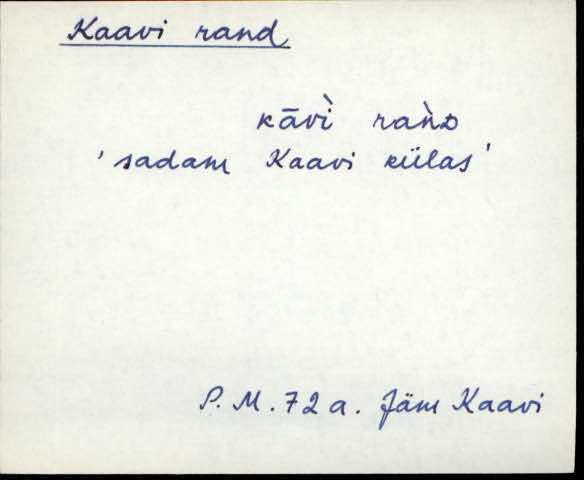 Kaavi rand
kāvì rant̀ᴅ
'sadam Kaavi külas'
P. M. 72 a. Jäm Kaavi